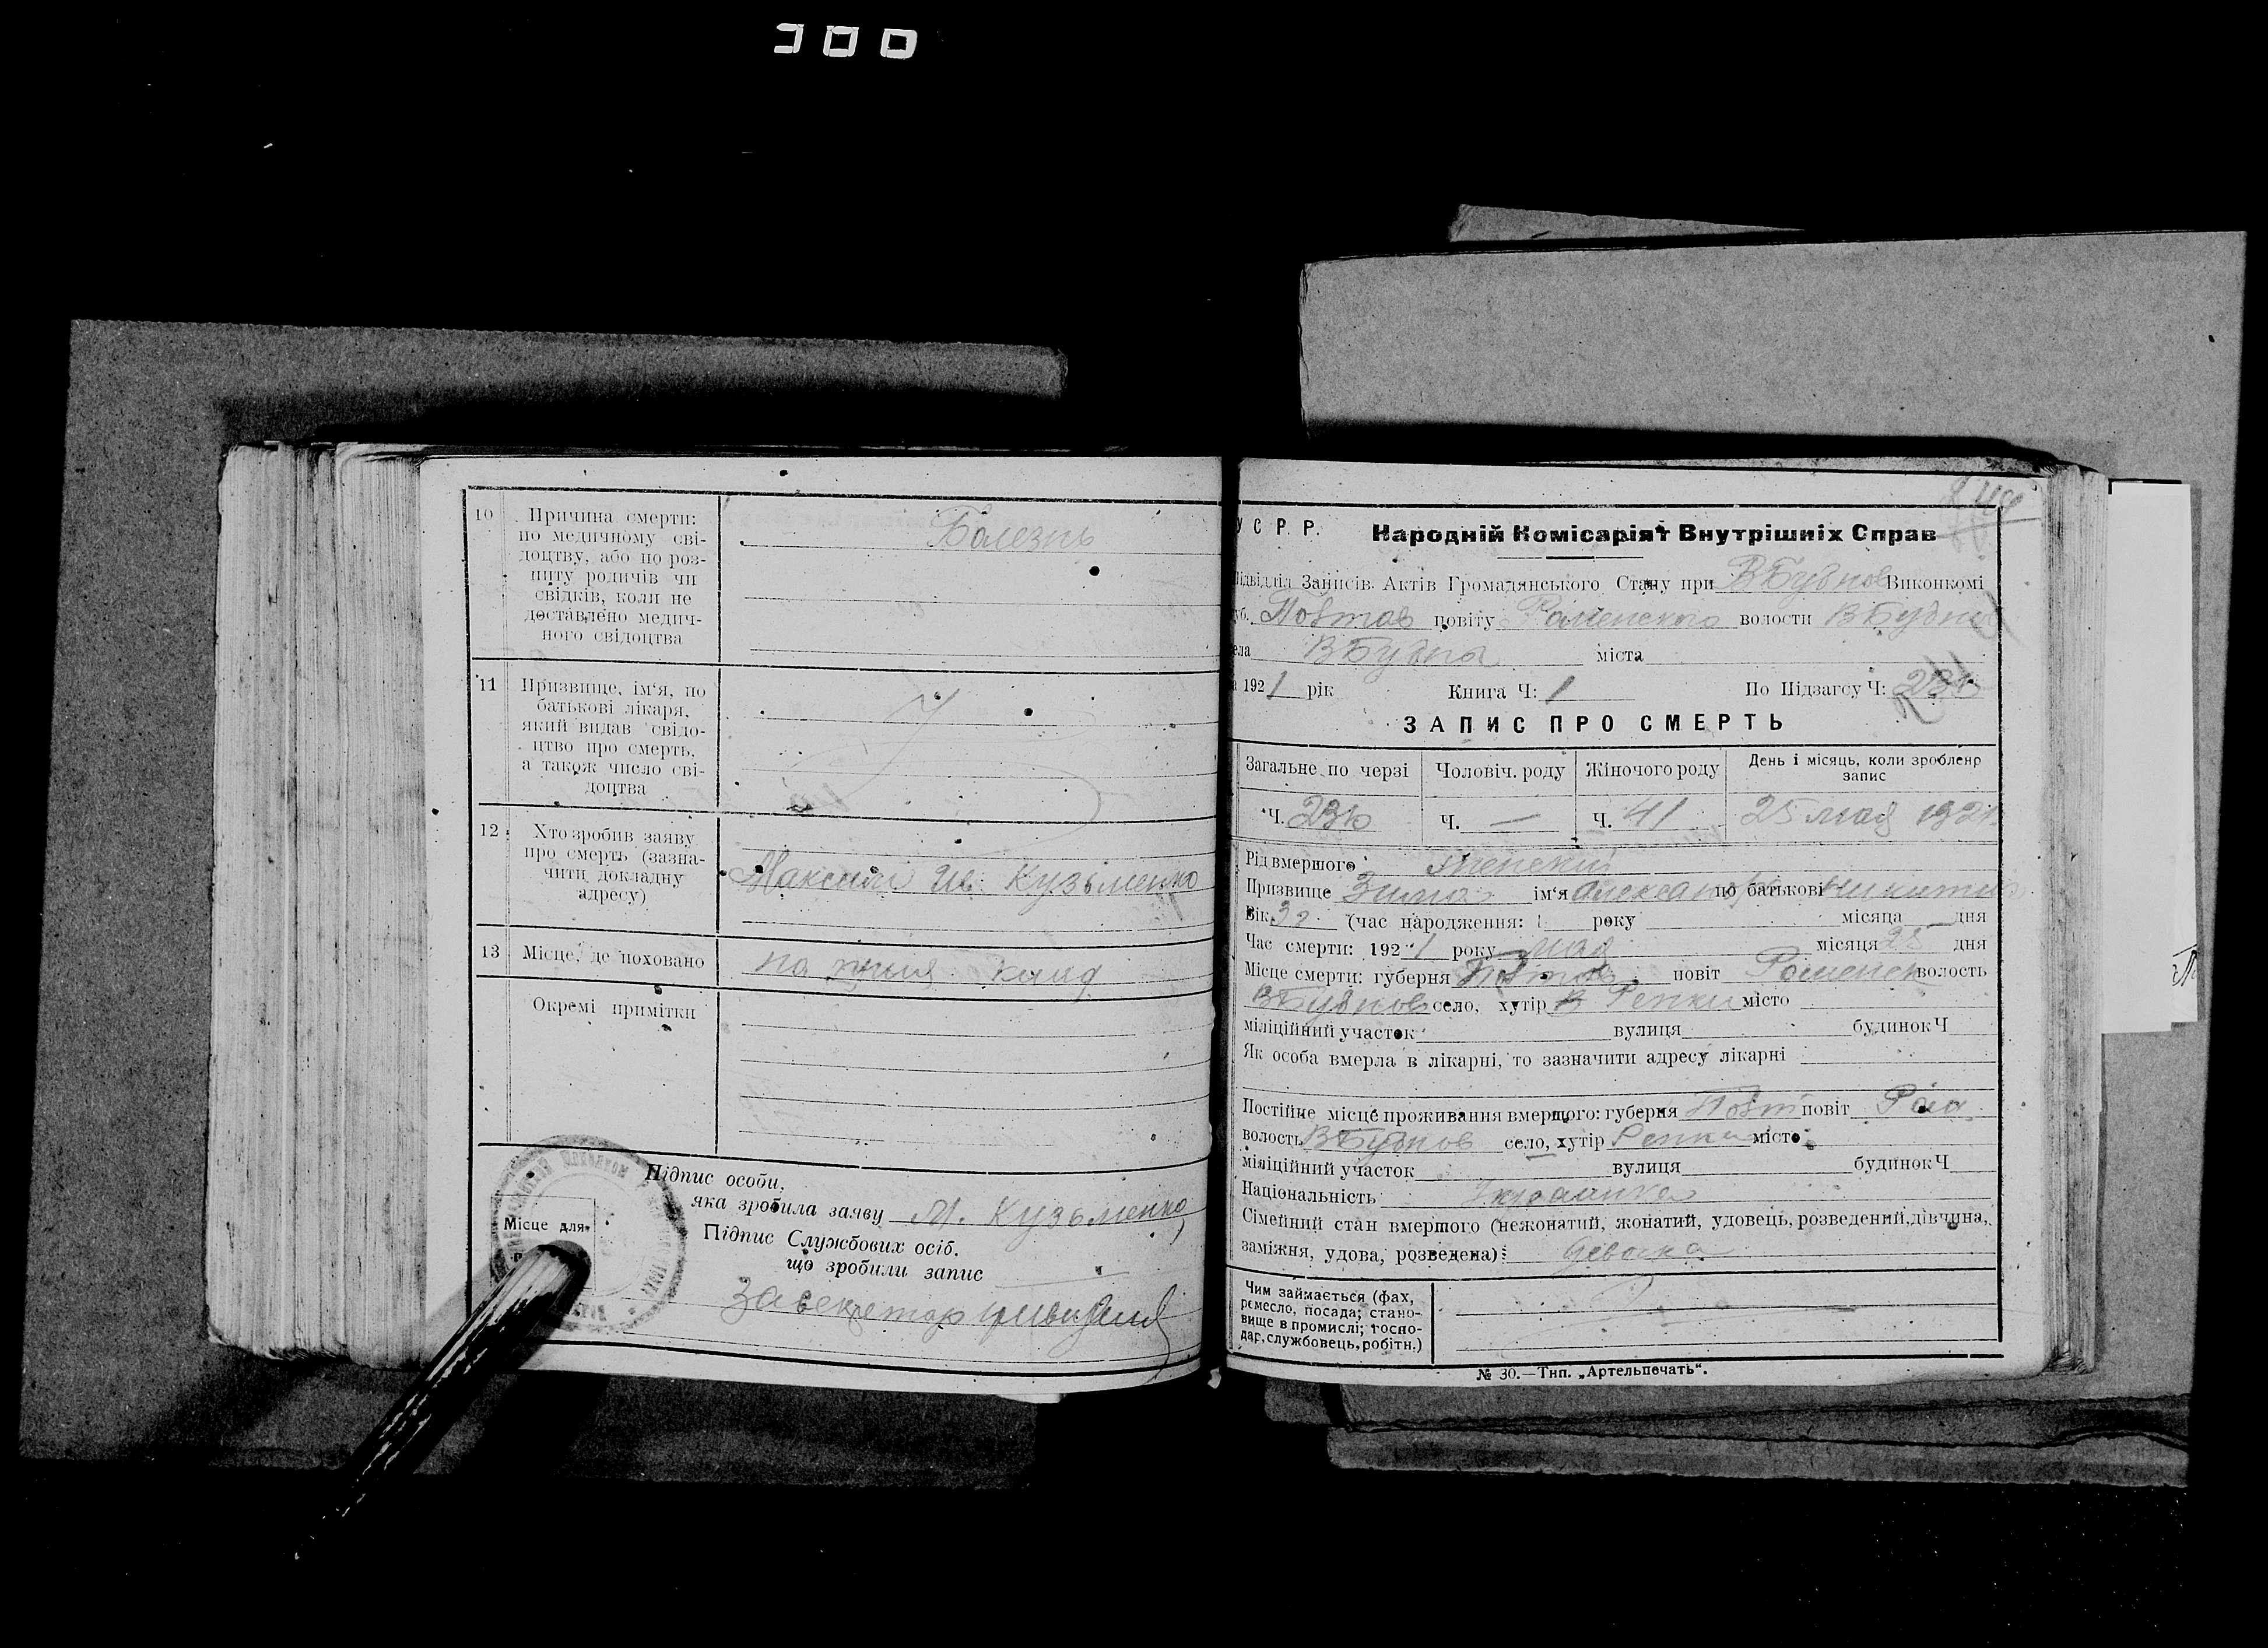 10 Причина смерти: Болезнь
по медичному сві-
доцтву, або по роз-
питу родичів чи
свідків, коли не
доставлено медич-
ного свідоцтва
11 Призвище, ім'я, по
батькові лікаря,
який видав свідо-
цтво про смерть,
а також число сві-
доцтва
12 Хто зробив заяву
про смерть (зазна-
чити докладну Максим Ив. Кузьменко
адресу)
13 Місце, де поховано на
Окремі примітки
Підпис особи,
яка зробила заяву М. Кузьменко
Місце для
Підпис Службових осіб.
що зробили запис
За секретар
У С Р. Р. Народній Комісаріят Внутрішніх Справ
Підвідділ Записів Актів Громадянського Стану при ВБубнов Виконкомі
губ. Полтав повіту Роменского волости ВБубн
села ВБубна міста
за 1921 рік Книга Ч: 1 По Підзагсу Ч:
ЗАПИС ПРО СМЕРТЬ
Загальне по черзі Чоловіч. роду Жіночого роду День і місяць, коли зроблено
запис
Ч. Ч. — Ч. 41 25 мая 1921
Рід вмершого Женский
Призвище Зима ім'я Александра по батькові Никитич
Вік 3 г (час народження: 1 року місяца — дня
Час смерти: 1921 року мая місяця 25 дня
Місце смерти: губерня Полтав повіт Роменск волость
ВБубнов село, хутір В Репки місто
міліційний участок вулиця будинок Ч
Як особа вмерла в лікарні, то зазначити адресу лікарні
Постійне місце проживання вмершого: губерня Полт повіт Ром
волость ВБубнов село, хутір Репки місто
міліційний участок вулиця будинок Ч
Національність Украинка
Сімейний стан вмершого (нежонатий, жонатий, удовець, розведений, дівчина,
заміжня, удова, розведена): девочка
Чим займається (фах,
ремесло, посада; стано-
вище в промислі; госпо-
дар, службовець, робітн.)
№ 30.—Тип. „Артельпечать“.